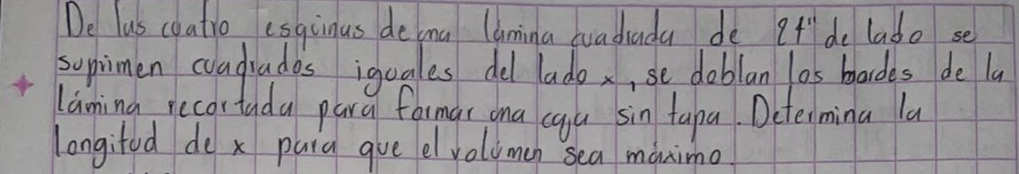 De las cuatro esquinas de una lámina cuadrada de 24" de lado se
suprimen cuadrados iguales del lado x, se doblan los bordes de la
lámina recortada para formar una caja sin tapa. Determina la
longitud de x para que el volúmen sea máximo.